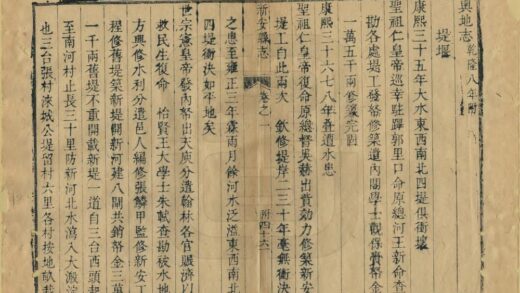 輿地志 乾隆八年附
堤堰
康熙三十五年大水東西南北四堤俱衝壞
聖祖仁皇帝巡幸駐蹕郭里口命原總河王新命查
勘各處堤工發帑修築遣內閣學士觀保賫帑金
一萬五千兩修築完固
康熙三十六七八年疊遭水患
聖祖仁皇帝復命原總督吳赫出貲効力修築新安
堤工自此兩次 欽修堤岸二三十年毫無衝決
新安縣志 卷之一 附四十六
之患至雍正三年霖雨月餘河水泛溢東西南北
四堤衝決如平地矣
世宗憲皇帝發內帑出天庾分遣翰林各官賑濟以
救民生復命 怡賢王大學士朱軾查勘被水地
方興修水利分遣邑人編修張鱗甲監修新安工
程修舊堤築新堤開新河建八閘共銷帑金三萬
一千兩舊堤不重開載新堤一道自三台西頭起
至南河村止長三十里防新河北水瀉入大澱
也三台張村淶城公堤留村六里各村按地畝